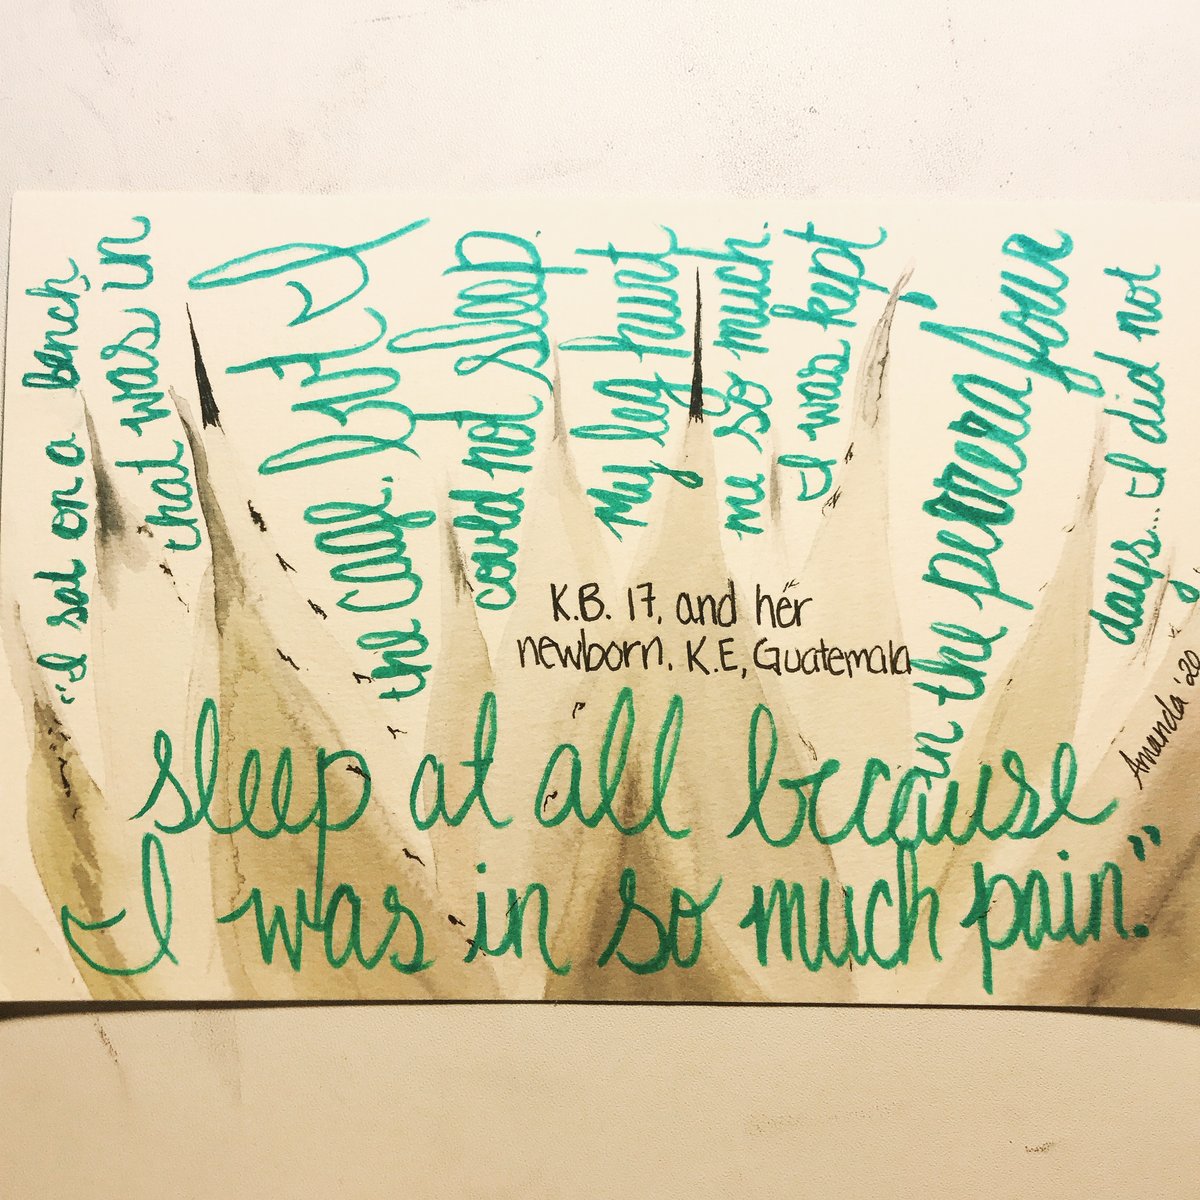 "I sat on a bench
that was in
the cage, but I
could not sleep.
My leg hurt
me so much.
I was kept
in the perrera four
days... I did not
sleep at all because
I was in so much pain."
K.B. 17, and her
newborn, K.E, Guatemala
Amanda '20